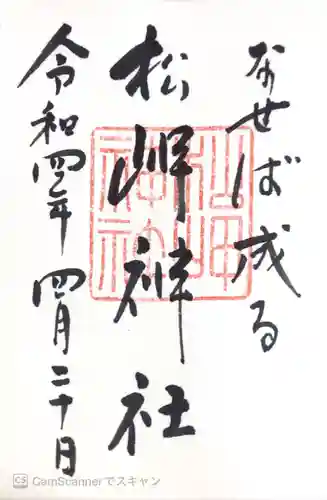 なせば成る
松岬神社
令和四年 四月二十日
CamScannerでスキャン